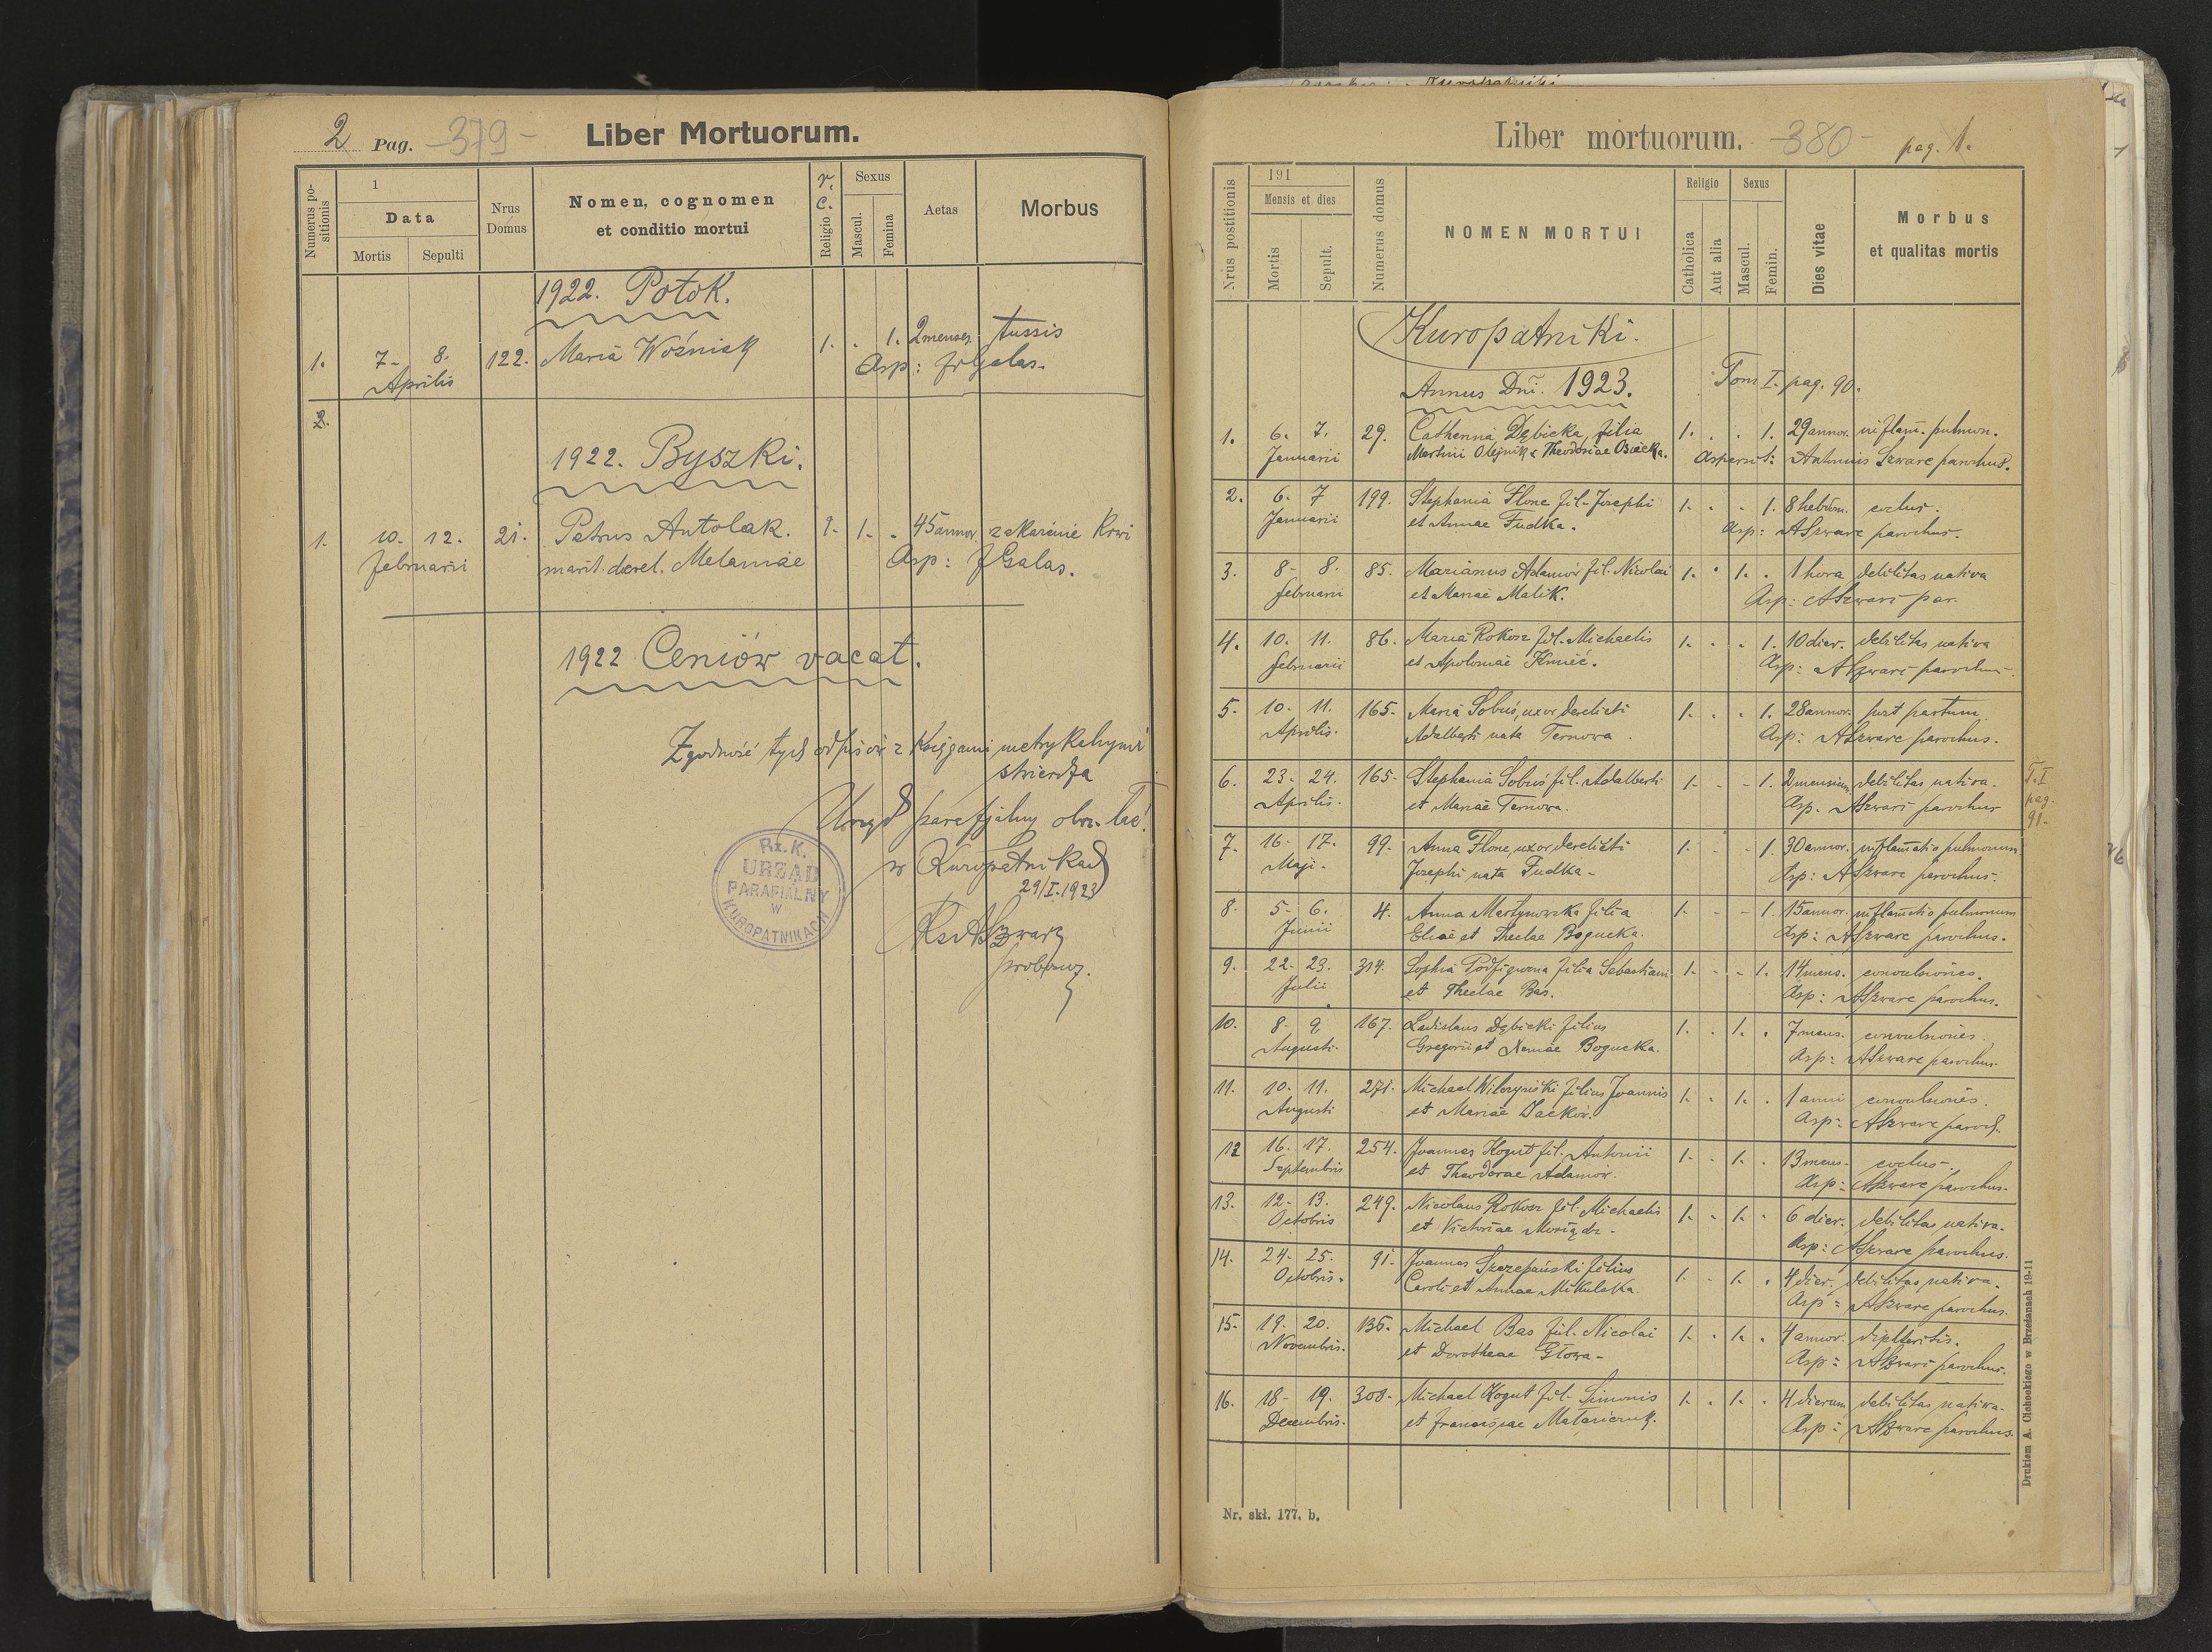 2 Pag. -379- Liber Mortuorum.
Numerus positionis
1
Data
Mortis Sepulti
Nrus Domus
Nomen, cognomen
et conditio mortui
r. c. Religio
Sexus
Mascul. Femina
Aetas
Morbus
1922. Potok.
1. 7- 8. 122. Maria Woźniak 1. . 1. 2menses tussis
Aprilis Asp: frGalas.
2.
1922. Byszki.
1. 10. 12. 21. Petrus Antolak. 1. 1. . 45annor. zakażenie Krwi
Februarii marit. derel. Melaniae Asp: JGalas.
1922 Ceniów vacat.
Zgodność tych odpisów z Księgami metrykalnymi
stwierdza
Urząd parafjalny obrz. łać.
w Kuropatnikach
29/I.1923
KsASzwarz
proboszcz.
Rz. K.
URZĄD
PARAFIALNY
W
KUROPATNIKACH
Liber mortuorum. -380- pag. 1.
Nrus postitionis
191
Mensis et dies
Mortis Sepult.
Numerus domus
NOMEN MORTUI
Religio
Catholica Aut alia
Sexus
Mascul. Femin.
Dies vitae
Morbus
et qualitas mortis
Kuropatniki.
Annus Dni. 1923. Tom I. pag. 90.
1. 6. 7. 29. Catherina Dębicka, filia 1. . . 1. 29annor. inflam. pulmon.
Januarii Martini Olejnik & Theodosiae Osiecka. Aspersit: Antonius Szwarc parochus.
2. 6. 7 199. Stephania Flonc fil. Josephi 1. . . 1. 8hebdom. coclus.
Januarii et Annae Fudka. Asp: ASzwarc parochus.
3. 8- 8. 85. Marianus Adamów fil. Nicolai 1. . 1. . 1hora debilitas nativa
Februarii et Mariae Malik. Asp: ASzwarc par.
4. 10. 11. 86. Maria Rokosz fil. Michaelis 1. . . 1. 10dier. debilitas nativa
Februarii et Apoloniae Kmieć. Asp: ASzwarc parochus.
5. 10. 11. 165. Maria Sobuś, uxor derelicti 1. . . 1. 28annor. post partum
Aprilis. Adalberti nata Ternowa. Asp: ASzwarc parochus.
6. 23- 24. 165- Stephania Sobuś fil. Adalberti 1. - - 1. 2mensium debilitas nativa.
Aprilis. et Mariae Ternowa. Asp. ASzwarc parochus
T. I
pag.
91.
7. 16- 17. 99. Anna Flonc, uxor derelicti 1. - - 1. 30annor. inflamatio pulmonum
Maji- Josephi nata Fudka- Asp: ASzwarc parochus.
8. 5- 6. 4. Anna Martynowska filia 1. - - 1. 15annor. inflamatio pulmonum
Junii Eliae et Theclae Bogucka. Asp: ASzwarc parochus.
9. 22- 23. 314. Sophia Podfigurna filia Sebastiani 1. - - 1. 14mens. convulsiones.
Julii et Theclae Bas. Asp: ASzwarc parochus.
10. 8- 9. 167. Ladislaus Dębicki filius 1. . 1. . 7mens. convulsiones.
Augusti. Gregorii et Xeniae Bogucka. Asp: ASzwarc parochus.
11. 10. 11. 271. Michael Wilczyński filius Joannis 1. . 1. . 1anni convulsiones.
Augusti et Mariae Jacków. Asp: ASzwarc paroch.
12 16- 17. 254. Joannes Kogut fil. Antonii 1. - 1. . 13mens- coclus-.
Septembris et Theodorae Adamów. Asp: ASzwarc parochus.
13. 12- 13. 249. Nicolaus Rokosz fil. Michaelis 1. - 1. . 6 dier. debilitas nativa.
Octobris et Victoriae Mosiądz- Asp: ASzwarc parochus.
14. 24- 25. 91- Joannes Szczepański filius 1. - 1. . 4dier. debilitas nativa.
Octobris. Caroli et Annae Mikulska. Asp: ASzwarc parochus.
15- 19. 20. 136. Michael Bas fil. Nicolai 1. . 1. . 4annor. diphteritis.
Novembris. et Dorotheae Głowa- Asp: ASzwarc parochus.
16. 18- 19. 308- Michael Kogut fil. Simonis 1. . 1. . 4dierum debilitas nativa.
Decembris. et Franciscae Matwiczuk. Asp: ASzwarc parochus.
Nr. skł. 177. b.
Drukiem A. Cichockiego w Brzeżanach 19-11